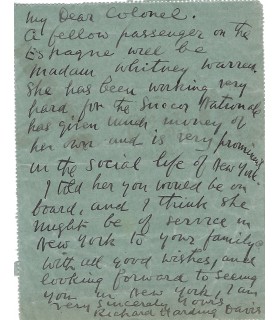 My Dear Colonel.
A fellow passenger on the
Espagne will be
Madam Whitney Warren.
She has been working very
hard for the Secor Nationale
has given much money of
her own and is very prominent
in the social life of New York.
I told her you would be on
board, and I think she
might be of service in
New York to your family
with all good wishes, and
looking forward to seeing
you in New York, I am
Very sincerely yours
Richard Harding Davis